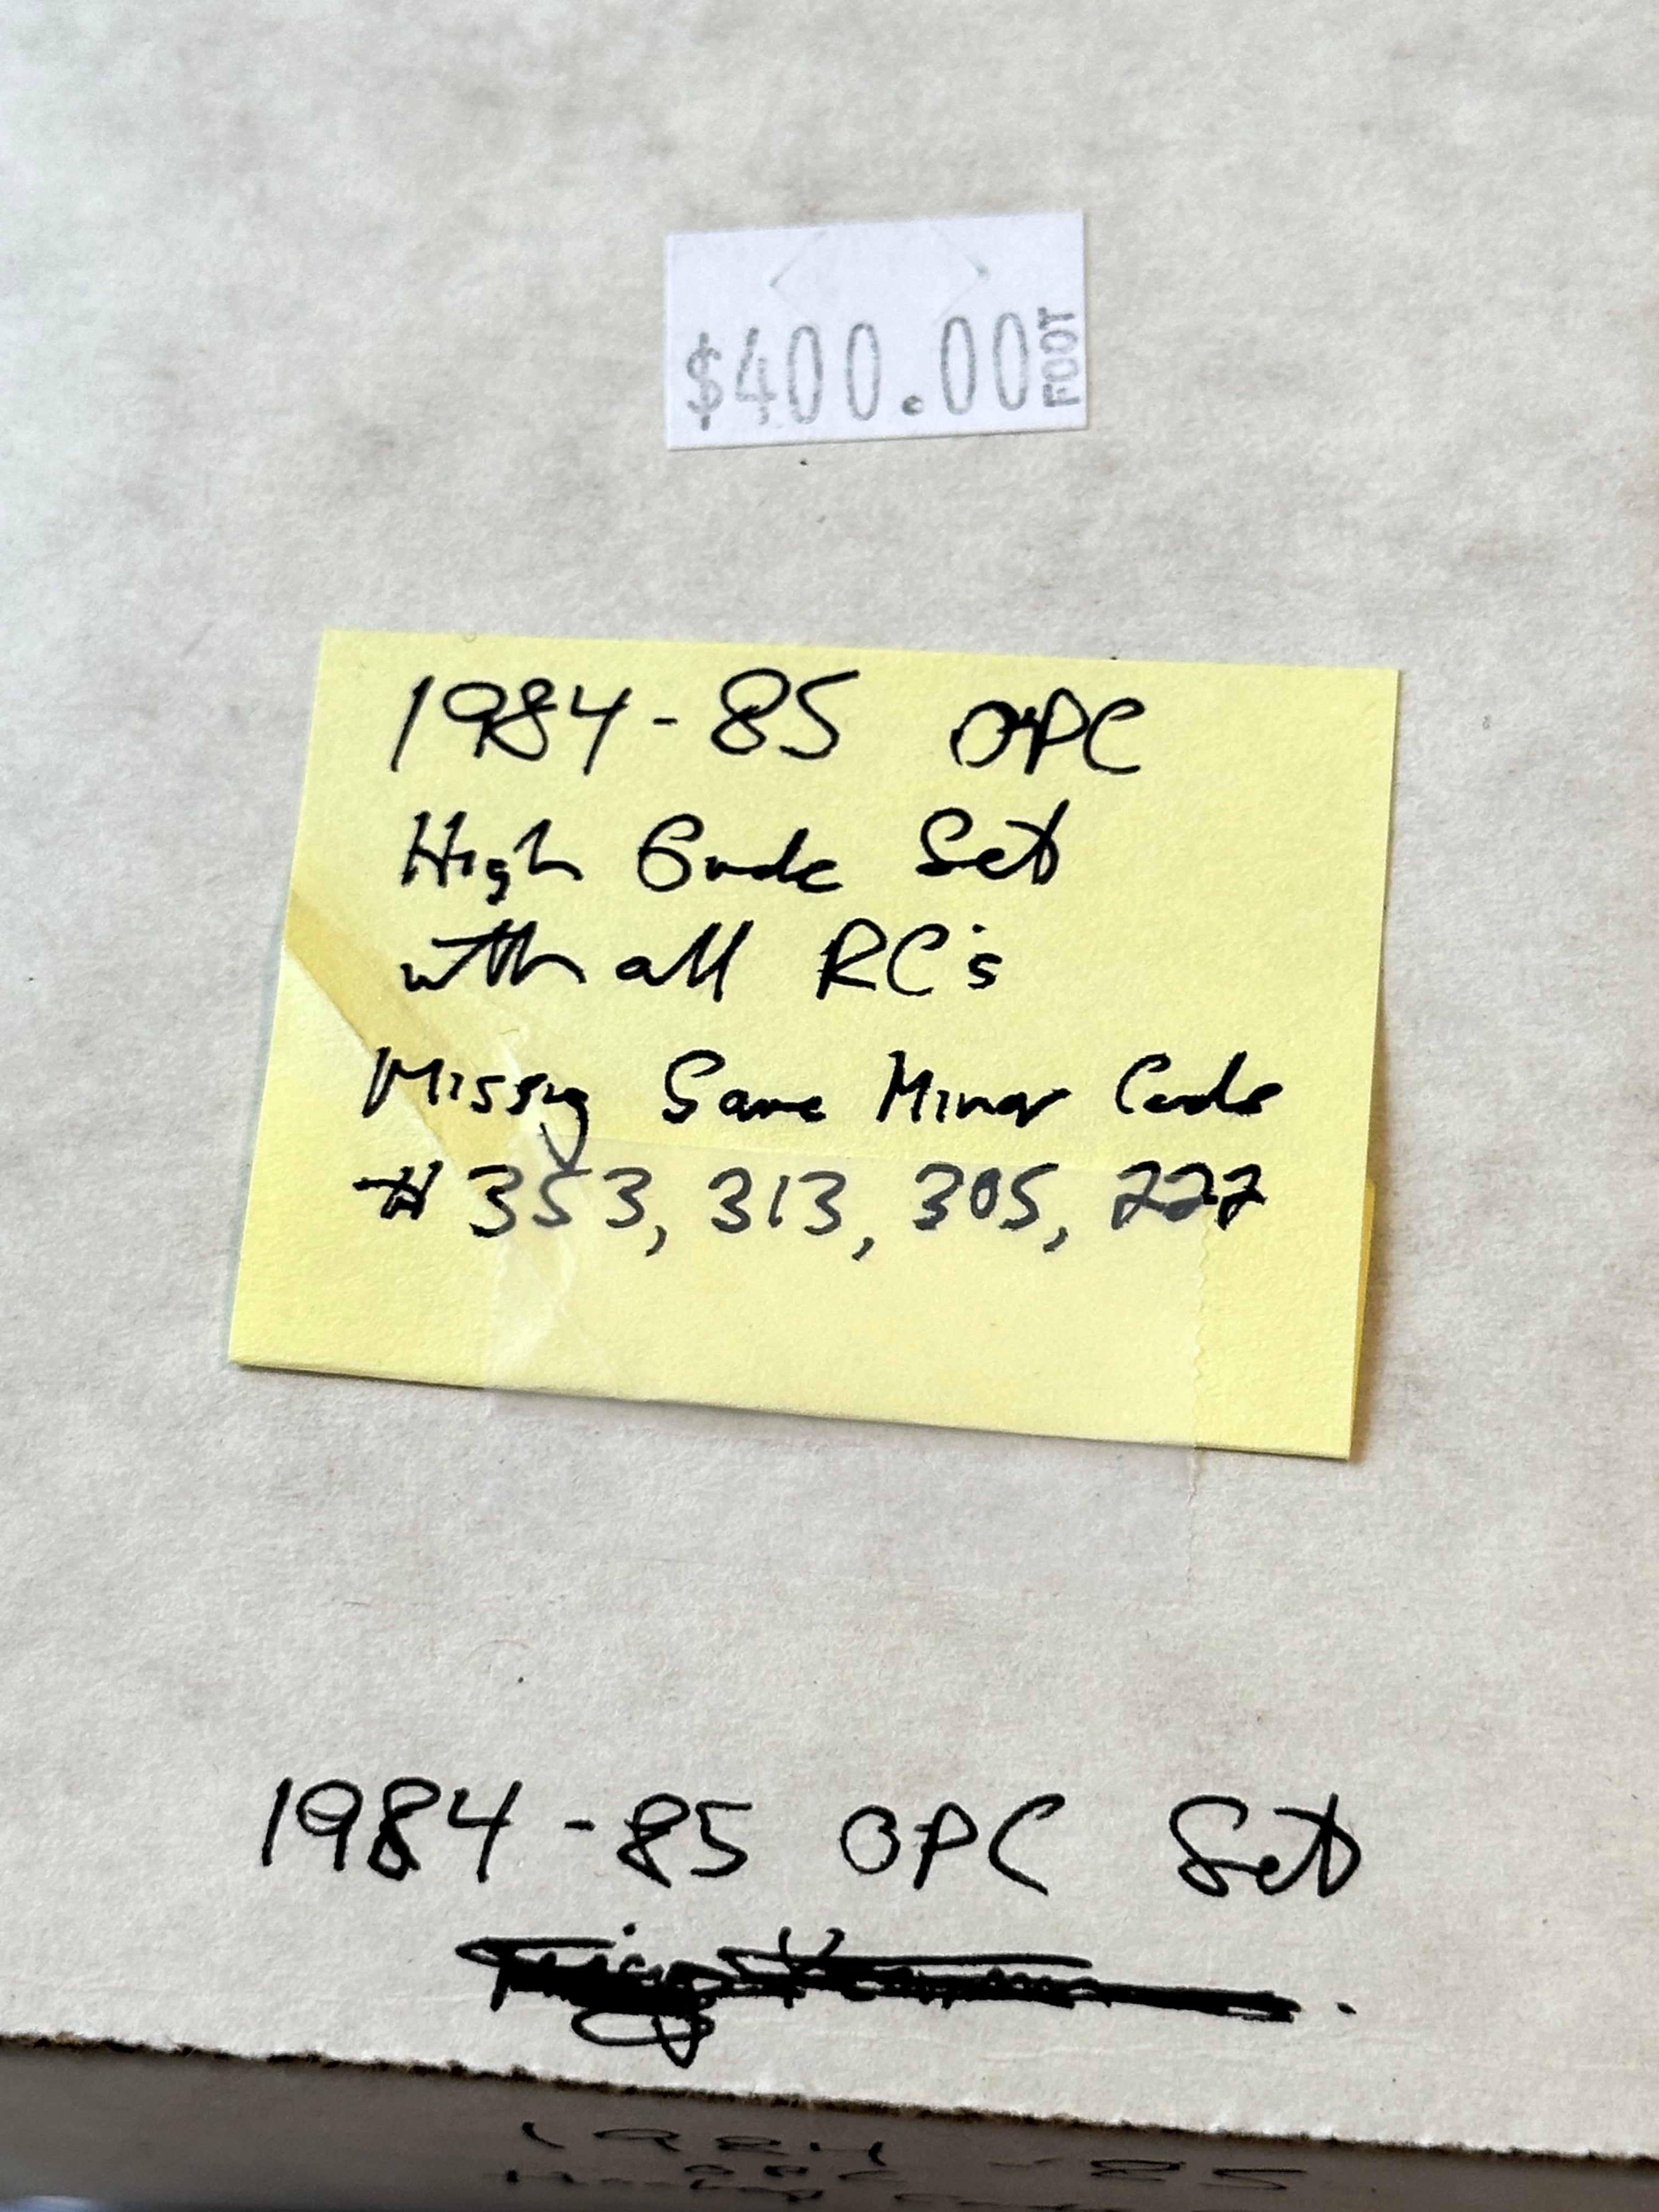 $400.00
FOOT
1984-85 OPC
High Grade Set
with all RC's
Missing Some Minor Cards
# 353, 313, 305, 222
1984-85 OPC Set
1984-85